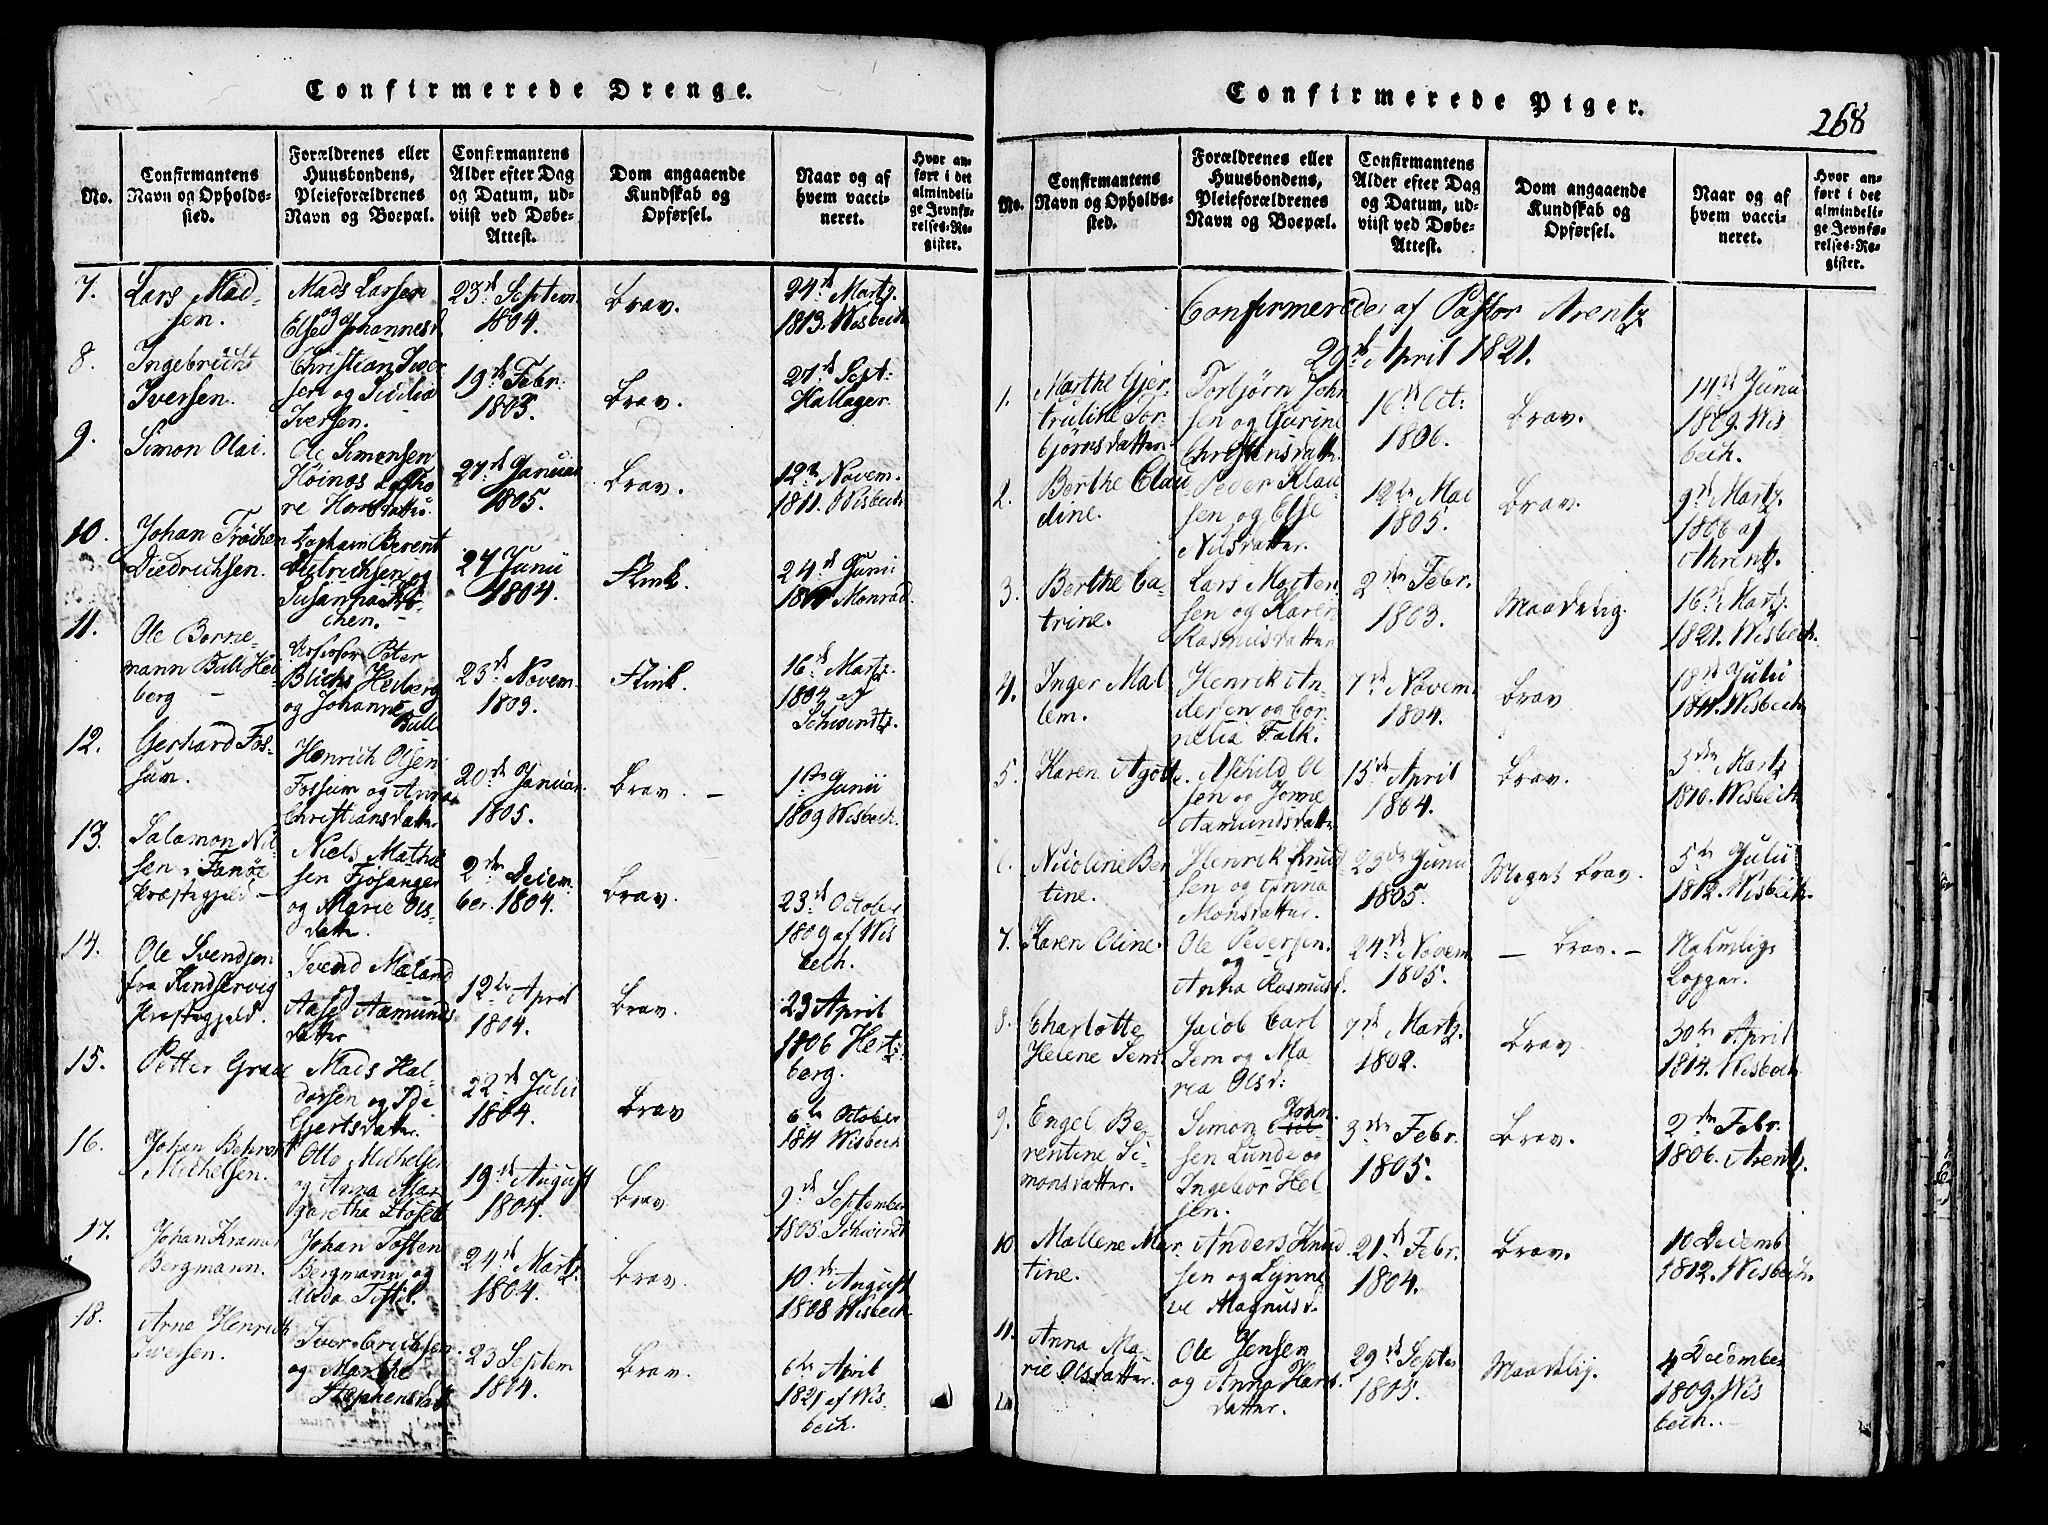 Confirmerede Drenge.
No.
Confirmantens
Navn og Opholds-
sted.
Forældrenes eller
Huusbondens,
Pleieforældrenes
Navn og Boepæl.
Confirmantens
Alder efter Dag
og Datum, ud-
viist ved Døbe-
Attest.
Dom angaaende
Kundskab og
Opførsel.
Naar og af
hvem vacci-
neret.
Hvor an-
ført i det
almindeli-
ge Jevnfø-
relses-Re-
gister.
7.
Lars Mad-
sen.
Mads Larsen
og
Elsed Johannesd.
23de Septem
1804.
Brav.
24de Martz.
1813. Wisbech
8.
Ingebricht
Iversen.
Christian Iver
sen og Sicilia
Iversen.
19de Febr.
1805.
Brav.
27de Sept.
Hallager.
9.
Simon Olai.
Ole Simensen
Höinæs og Tho
re Hansdatter.
27de Januar
1805.
Brav.
12te Novem.
1811. Wisbech
10.
Johan Fröchen
Diedrichsen.
Berent
Diedrichsen og
Susanna Frö-
chen.
24 Junii
1804.
Flink.
24de Junii
Monrad
11.
Ole Borne-
mann Bull Hei
berg -
Peter
Blichs Heiberg
og Johanne
Bull
23de Novem.
1803.
Flink.
16de Martz.
1804 af
Schwindt.
12.
Gerhard Fos-
sum.
Henrich Olsen
Fossum og Anna
Christiansdatter
20de Januar.
1805.
Brav. -
1ste Junii
1809 Wisbech.
13.
Salamon Nil-
sen i Fanöe
Præstegjeld -
Niels Mathi
sen Fjösanger
og Marie Ols-
datter.
2den Decem
ber. 1804.
Brav.
23de October
1809 af Wis
bech.
14.
Ole Svendsen
fra Kindservig
Præstegjeld.
Svend Mæland
og
Aase Aamunds
datter
12te April
1804.
Brav.
23 April
1806 Hert-
berg.
15.
Petter Grave
Mads Hal-
dorsen og Idi
Gjertsdatter.
22de Julii
1804.
Brav
6te October
1811 Wisbech
16.
Johan Behrent
Michelsen.
Otto Michelsen
og Anna Mar
garetha
19de August
1804.
Brav
9de September
1805 Schwindt
17.
Johan Kramer
Bergmann.
Johan Tosten
Bergmann og
24de Martz.
1804.
Brav.
10de August
1808 Wisbech
18.
Arne Henrich
Iversen.
Iver Erichsen.
og Marthe
Stephensdatt
23 Septem
1804.
Brav.
6te April
1821 af Wis-
bech.
Confirmerede Piger.
268
No.
Confirmantens
Navn og Opholds-
sted.
Forældrenes eller
Huusbondens,
Pleieforældrenes
Navn og Boepæl.
Confirmantens
Alder efter Dag
og Datum, ud-
viist ved Døbe-
Attest.
Dom angaaende
Kundskab og
Opførsel.
Naar og af
hvem vacci-
neret.
Hvor an-
ført i det
almindeli-
ge Jevnfø-
relses-Re-
gister.
Confirmerede af Pastor Arentz
29de April 1821.
1.
Marthe Gjer
truline Tor-
björnsdatter
Torbjörn John
sen og Gurine
Christensdatt.
16de Oct:
1806.
Brav.
14de Junii
1809. Wis-
bech.
2.
Berthe Clau
dine.
Peder Klau
sen og Else
Nilsdatter.
12te Mai
1805.
Brav.
9de Martz.
1806 af
Ahrentz.
3.
Berthe Ca-
trine.
Lars Morten
sen og Karen
Rasmusdatter
2den Febr.
1803.
Maadelig.
16de Martz.
1821. Wisbech.
4.
Inger Mal
lem.
Henrik An-
dersen og Cor-
nelia Falk.
7de Novem
1804.
Brav
18de Julii
1811. Wisbech
5.
Karen Agothe.
Aschild O
sen og Jorine
Aamundsdatter
15de April
1804.
Brav.
3den Martz
1810. Wisbech
6
Nicoline Ber
tine.
Henrik Knud
sen og Anna
Monsdatter.
23de Junii
1805.
Meget Brav.
5te Julii
1812. Wisbech.
7.
Karen Oline.
Ole Pedersen.
og
Anna Rasmusd.
24de Novem
1805.
- Brav. -
Naturlige
Copper.
8.
Charlotte
Helene Sem.
Jacob Carl
Sem og Ma
ria Olsd:
7de Martz.
1802.
Brav.
30te April
1814. Wisbech.
9.
Engel Be
rentine Si-
monsdatter.
Simon John
sen Lunde og
Ingebor Hel
sen.
3den Febr.
1805.
Brav.
2den Febr.
1806. Arentz.
10.
Mallene Mar
tine.
Anders Knud
sen og Synne
ve Magnusd.
21de Febr.
1804.
Brav.
10 Decemb
1812. Wisbech.
11.
Anna Ma-
rie Olsdatter.
Ole Jensen
og Anna Hans
datter.
29de Septe
1805.
Maadelig.
4 December
1809. Wis
bech.